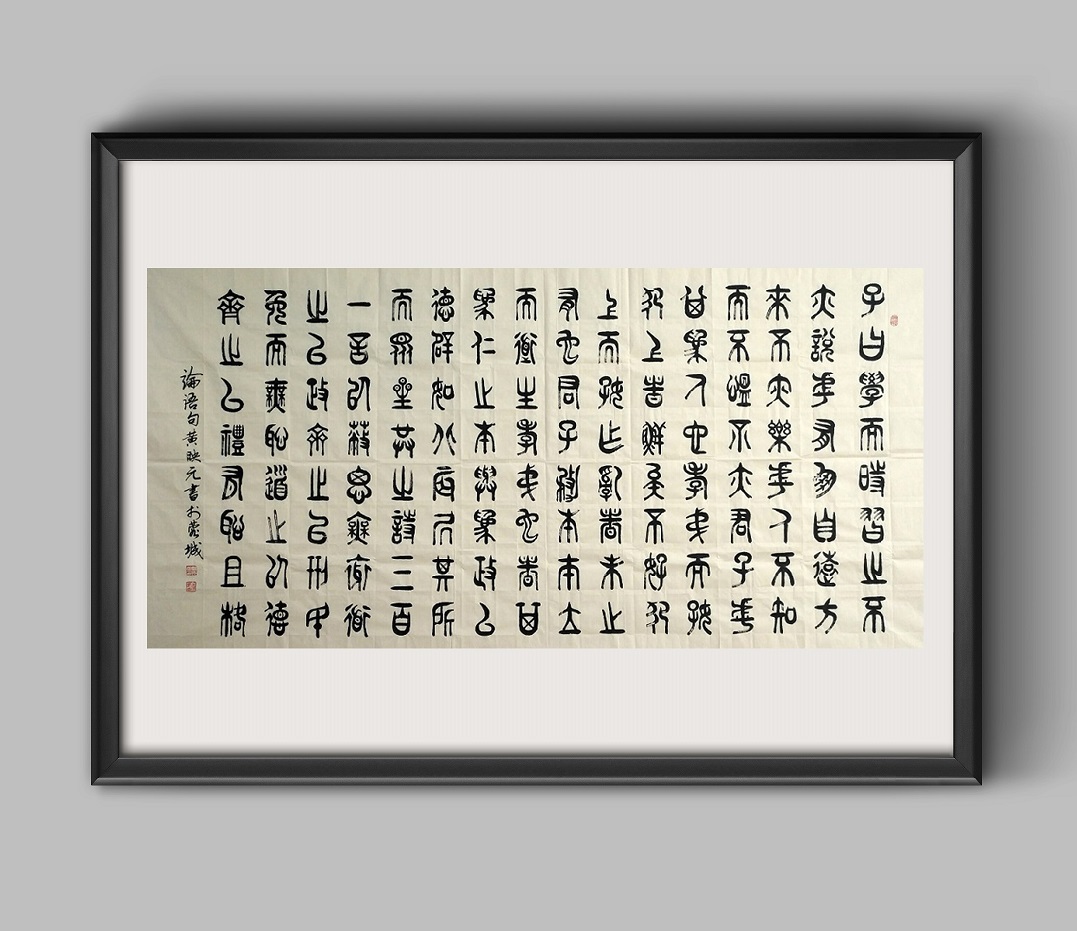 子曰學而時習之不
亦說乎有朋自遠方
來不亦樂乎人不知
而不慍不亦君子乎
其為人也孝弟而好
犯上者鮮矣不好犯
上而好作亂者未之
有也君子務本本立
而道生孝弟也者其
為仁之本與為政以
德辟如北辰居其所
而眾星共之詩三百
一言以蔽思無邪道
之以政齊之以刑民
免而無恥道之以德
齊之以禮有恥且格
論語句黄映元書於蒙城